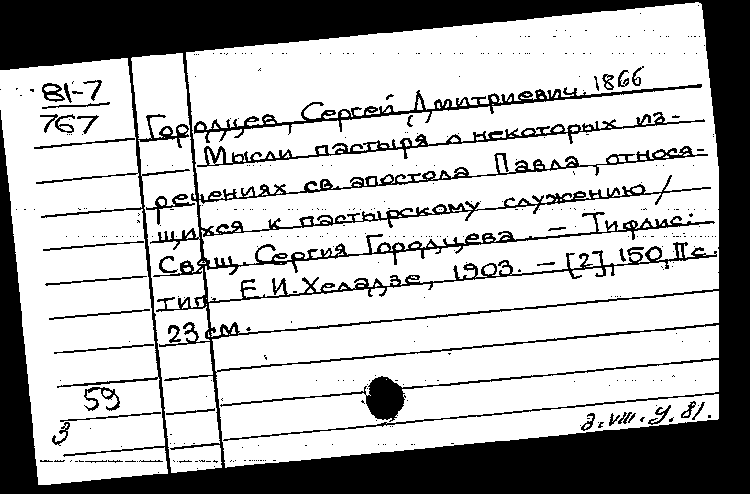 81-7
767
Городцев, Сергей Дмитриевич. 1866
Мысли пастыря о некоторых из-
речениях св. апостола Павла, относя-
щихся к пастырскому служению /
Свящ. Сергия Городцева. – Тифлис:
тип. Е.И. Хеладзе, 1903. – [2], 150, II с.
23 см.
59
3